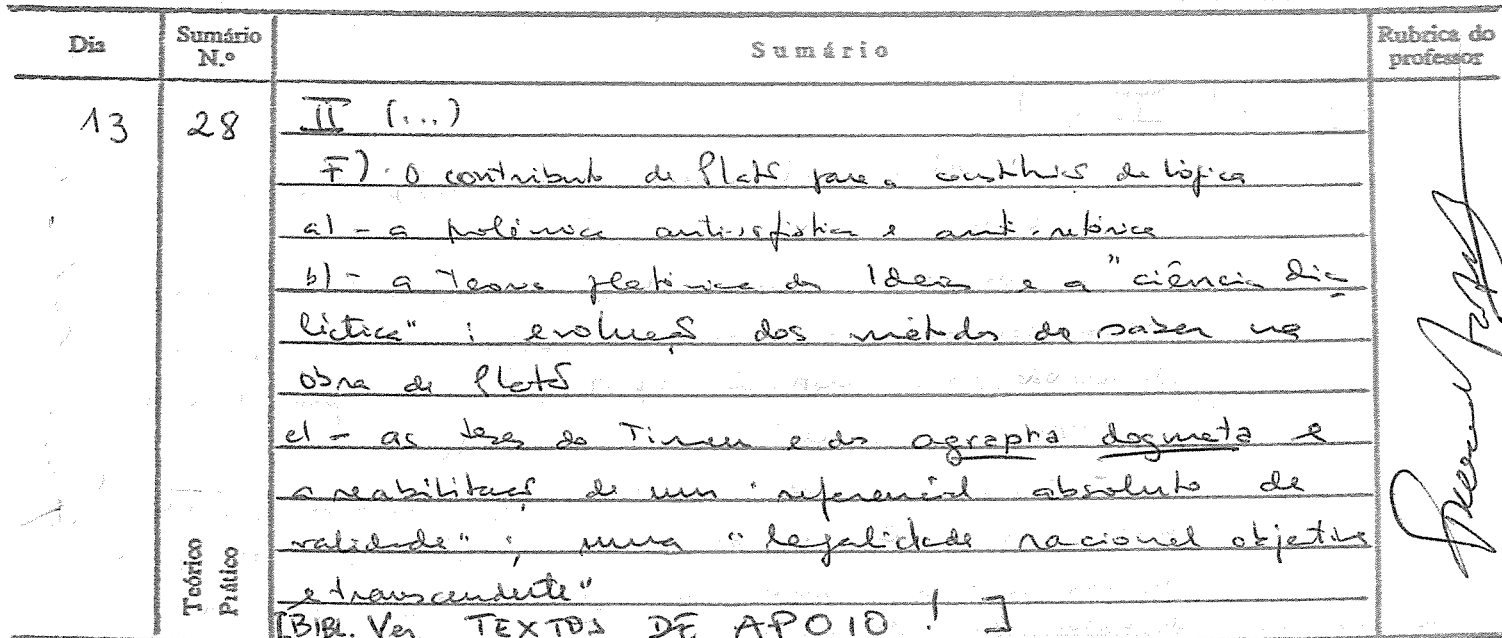 Dia Sumário N.º Sumário Rubrica do professor
13 28 II (...)
F) . O contributo de Platão para a constituição da lógica
a) - a polémica anti-sofística e anti-retórica
b) - a Teoria platónica das Ideias e a "ciência dia
léctica" : evolução dos métodos do saber na
obra de Platão
c) - as teses do Timeu e dos agrapha dogmata e
a reabilitação de um "referencial absoluto de
validade" ; uma "legalidade racional objectiva
e transcendente"
[BIBL. Ver TEXTOS DE APOIO ! ]
Teórico
Prático